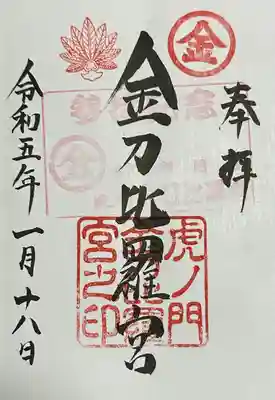 奉拝
金
金刀比羅宮
虎ノ門
金刀比羅
宮之印
令和五年一月十八日